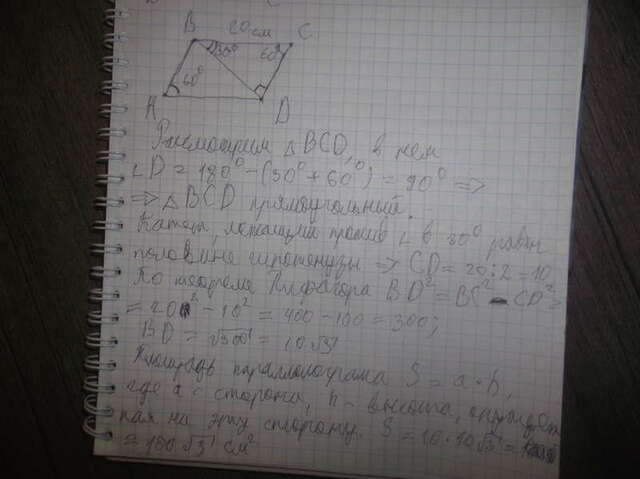 B 20 см C
30° 60°
60°
A D
Рассмотрим △BCD, в нем
∠D = 180° - (30° + 60°) = 90° =>
=> △BCD прямоугольный.
Катет, лежащий против ∠ в 30° равен
половине гипотенузы => CD = 20:2 = 10
По теореме Пифагора BD² = BC² - CD² =
= 20² - 10² = 400 - 100 = 300;
BD = √300 = 10√3
Площадь параллелограма S = a·h,
где a - сторона, h - высота,
на эту сторону. S = 10·10√3 =
= 100√3 см²